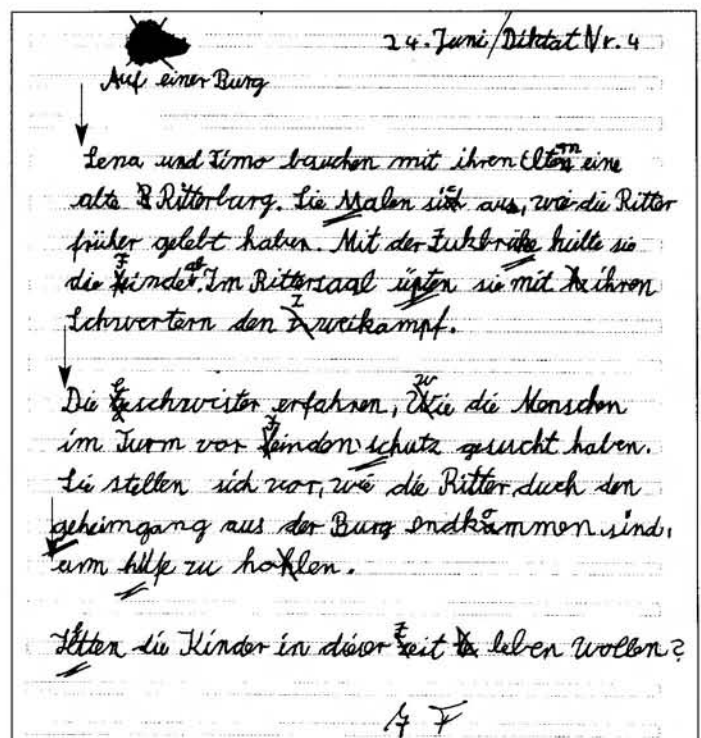 24. Juni/Diktat Nr. 4
Auf einer Burg
Lena und Timo besuchen mit ihren Eltern eine
alte Ritterburg. Sie Malen sich aus, wie die Ritter
früher gelebt haben. Mit der Zukbrüke heilte sie
die Feinde ab. Im Rittersaal üpten sie mit ihren
Schwertern den Zweikampf.
Die Geschwister erfahren, wie die Menschen
im Turm vor Feinden schutz gesucht haben.
Sie stellen sich vor, wie die Ritter duch den
geheimgang aus der Burg endkommen sind,
um hilfe zu hohlen.
Hetten die Kinder in dieser Zeit leben wollen?
7 F